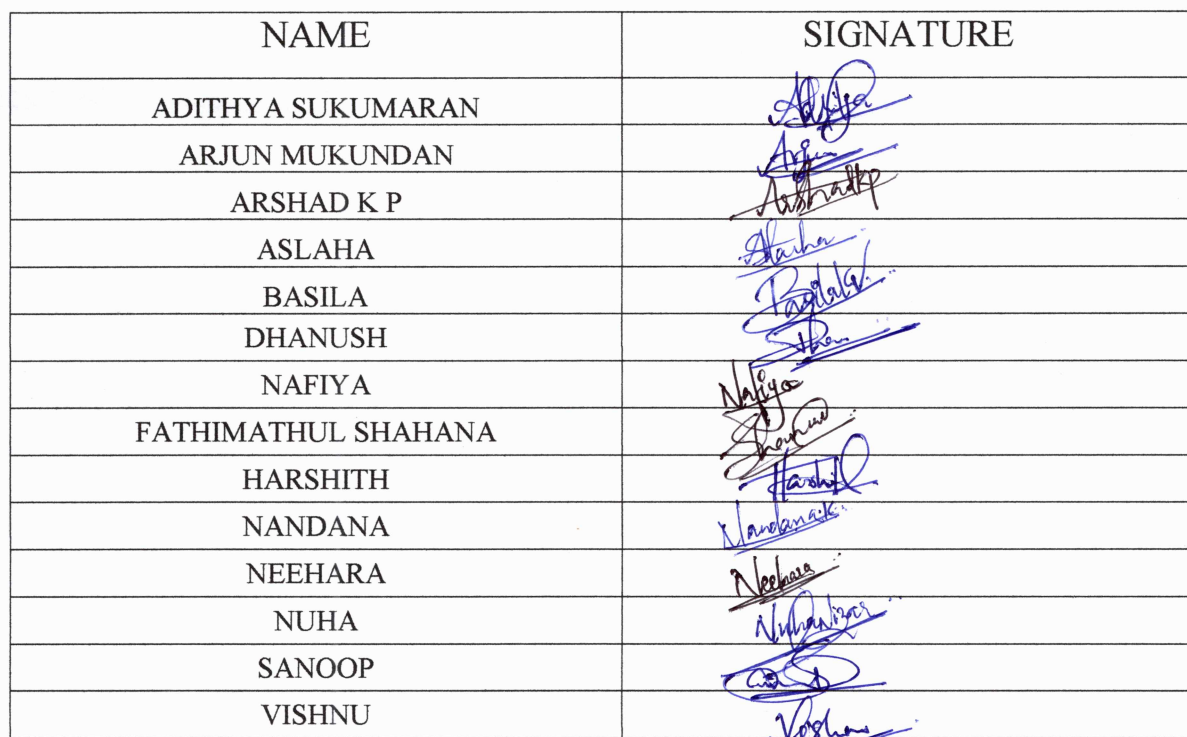 NAME SIGNATURE
ADITHYA SUKUMARAN Adithya
ARJUN MUKUNDAN Arjun
ARSHAD K P Arshadkp
ASLAHA
BASILA
DHANUSH
NAFIYA Nafiya
FATHIMATHUL SHAHANA
HARSHITH Harshith
NANDANA Nandana.k
NEEHARA Neehara
NUHA Nuha Nizar
SANOOP
VISHNU Vishnu